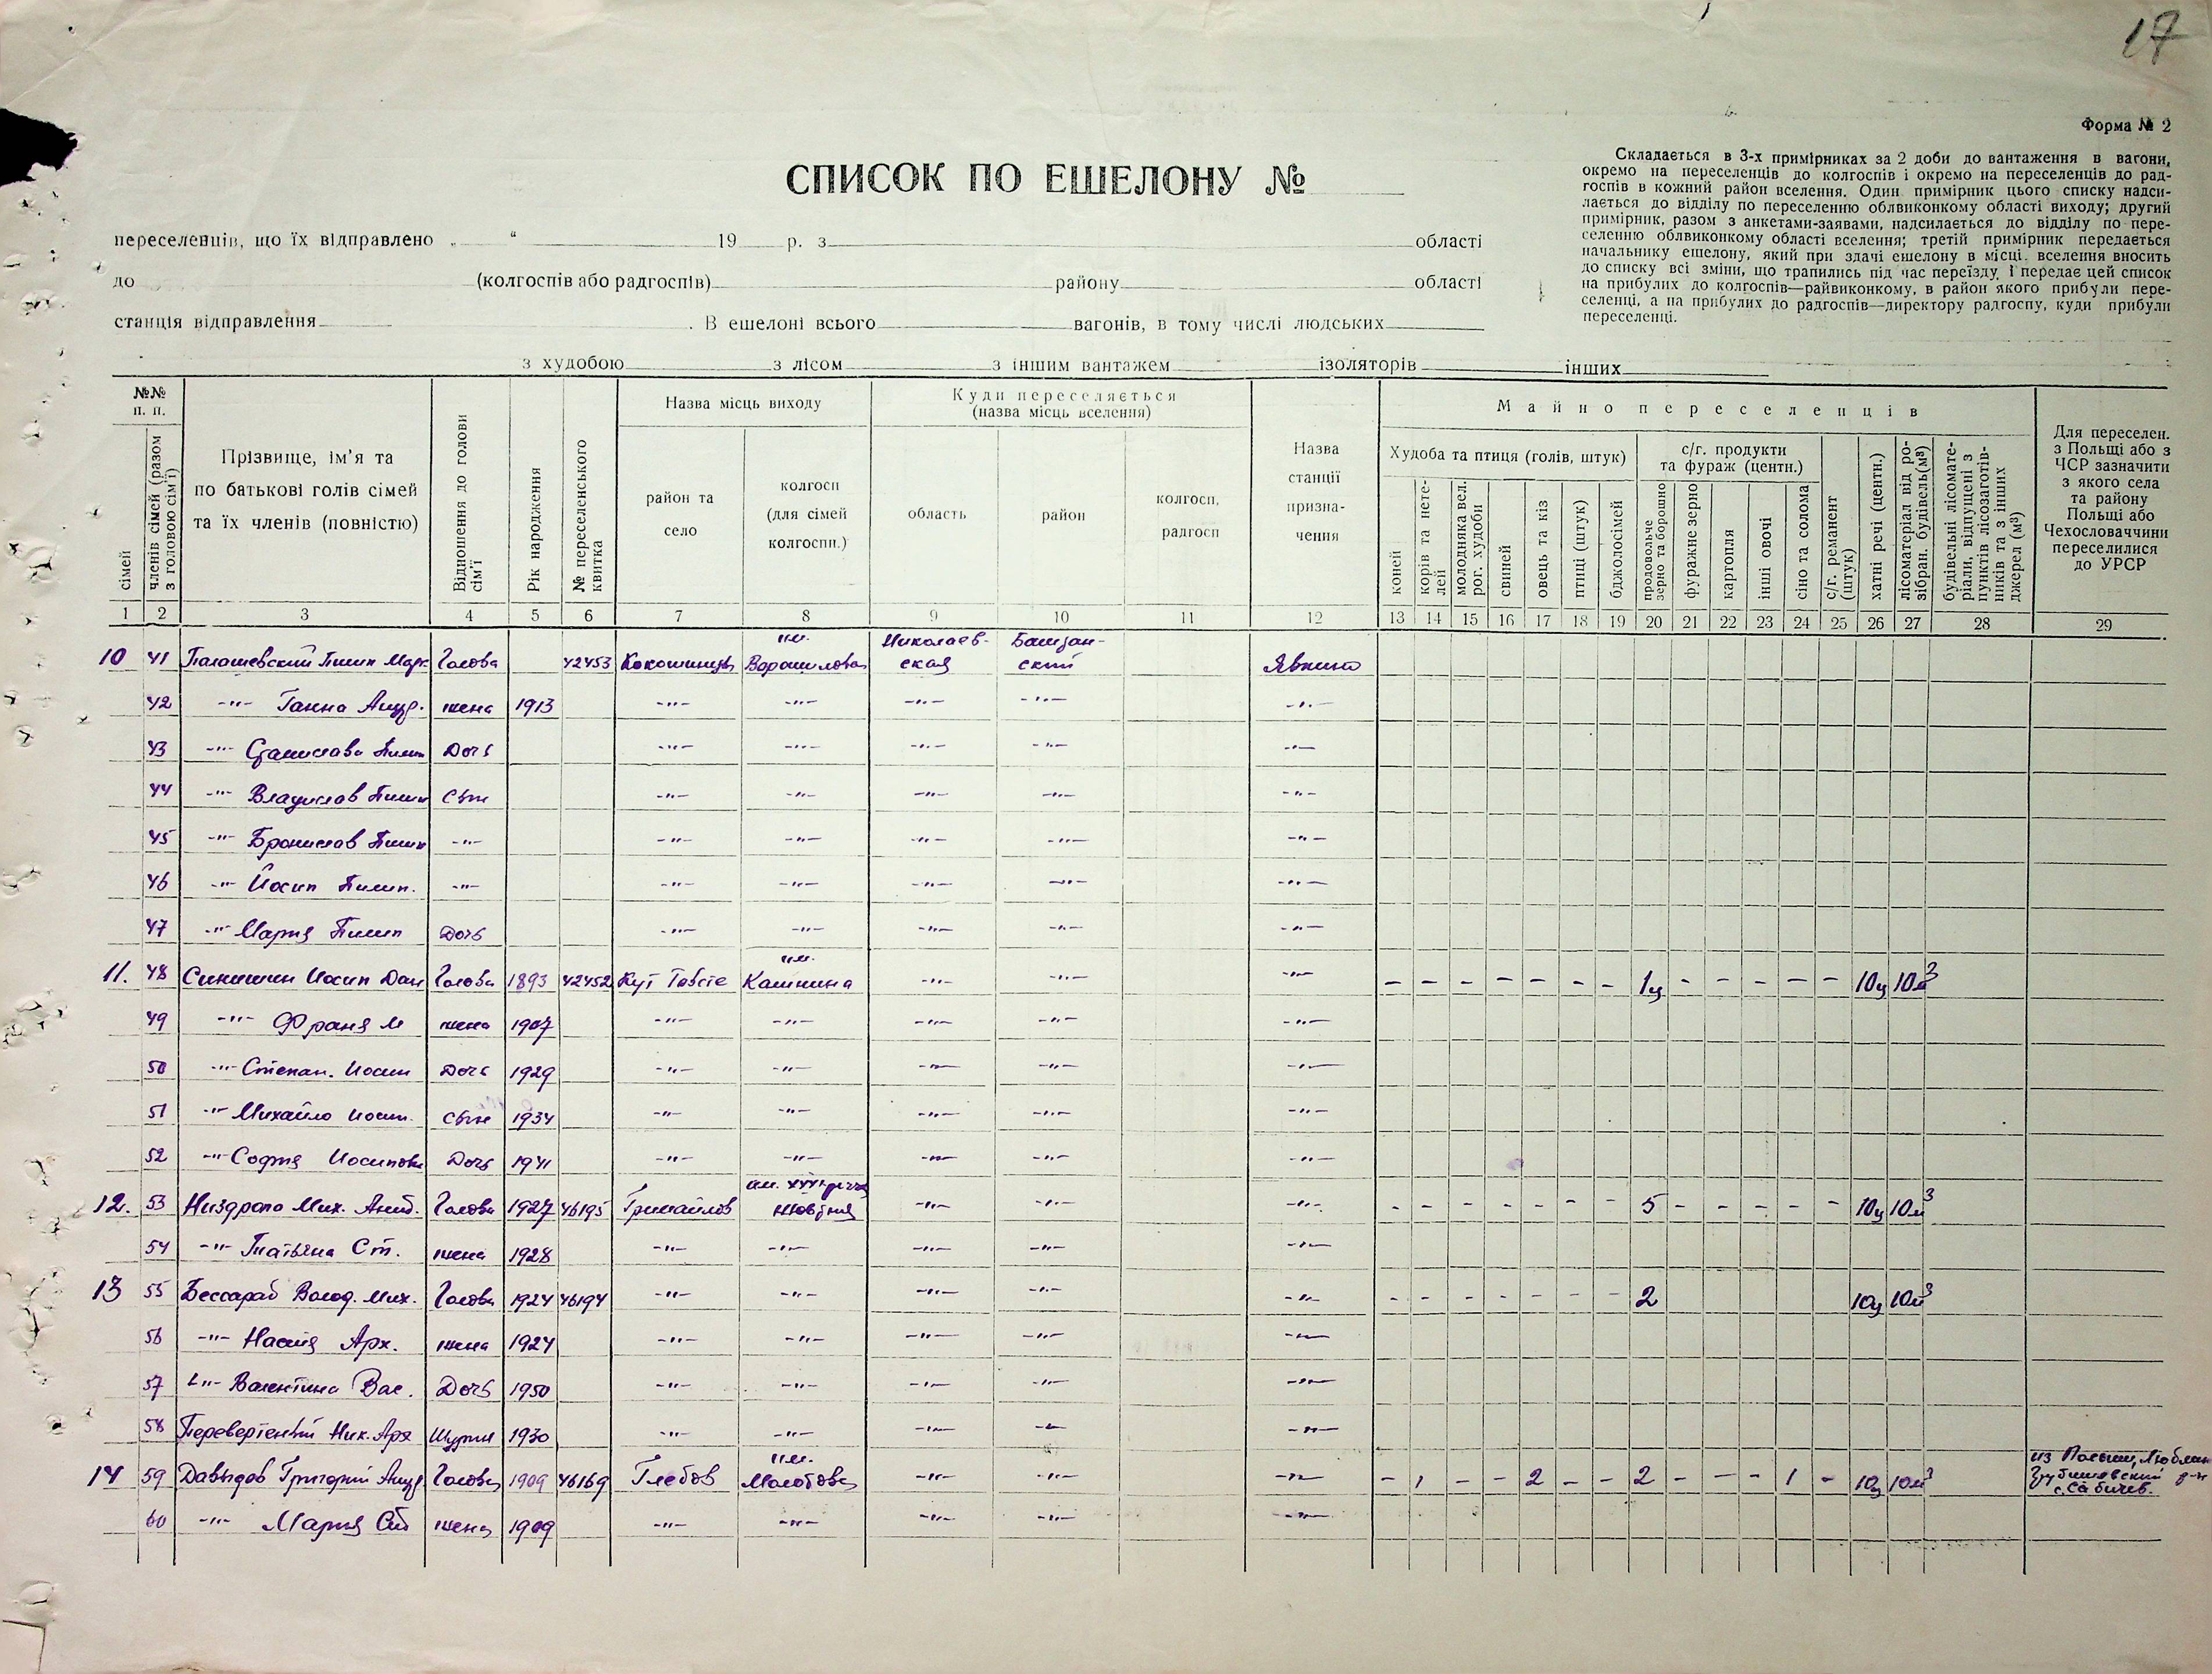 17
Форма № 2
СПИСОК ПО ЕШЕЛОНУ №
Складається в 3-х примірниках за 2 доби до вантаження в вагони,
окремо на переселенців до колгоспів і окремо на переселенців до рад-
госпів в кожний район вселення. Один примірник цього списку надси-
лається до відділу по переселенню облвиконкому області виходу; другий
примірник, разом з анкетами-заявами, надсилається до відділу по пере-
селенню облвиконкому області вселення; третій примірник передається
начальнику ешелону, який при здачі ешелону в місці вселення вносить
до списку всі зміни, що трапились під час переїзду, і передає цей список
на прибулих до колгоспів—райвиконкому, в район якого прибули пере-
селенці, а на прибулих до радгоспів—директору радгоспу, куди прибули
переселенці.
переселенців, що їх відправлено „ “ 19 р. з області
до (колгоспів або радгоспів) району області
станція відправлення . В ешелоні всього вагонів, в тому числі людських
з худобою з лісом з іншим вантажем ізоляторів інших
№№ п. п.
сімей
членів сімей (разом з головою сім'ї)
Прізвище, ім'я та
по батькові голів сімей
та їх членів (повністю)
Відношення до голови сім'ї
Рік народження
№ переселенського квитка
Назва місць виходу
район та село
колгосп (для сімей колгоспн.)
Куди переселяється
(назва місць вселення)
область
район
колгосп, радгосп
Назва станції призна-чення
Майно переселенців
Худоба та птиця (голів, штук)
коней
корів та нете-лей
молодняка вел. рог. худоби
свиней
овець та кіз
птиці (штук)
бджолосімей
с/г. продукти та фураж (центн.)
продовольче зерно та борошно
фуражне зерно
картопля
інші овочі
сіно та солома
с/г. реманент (штук)
хатні речі (центн.)
лісоматеріал від ро-зібран. будівель (м³)
будівельні лісомате-ріали, відпущені з пунктів лісозаготів-ників та з інших джерел (м³)
Для переселен. з Польщі або з ЧСР зазначити з якого села та району Польщі або Чехословаччини переселилися до УРСР
1 2 3 4 5 6 7 8 9 10 11 12 13 14 15 16 17 18 19 20 21 22 23 24 25 26 27 28 29
10 41 Голова 42453 им. Ворошилова Николаев-ская Баштан-ский Явкино
42 -"- Ганна Андр. жена 1913 -"- -"- -"- -"- -"-
43 -"- Станислава Пилип Дочь -"- -"- -"- -"- -"-
44 -"- Владислав Пилип Сын -"- -"- -"- -"- -"-
45 -"- Бронислав Пилип -"- -"- -"- -"- -"- -"-
46 -"- Йосип Пилип. -"- -"- -"- -"- -"- -"-
47 -"- Мария Пилип Дочь -"- -"- -"- -"- -"-
11. 48 Иосип Дан Голова 1893 42452 Кут Товсте им. Калинина -"- -"- -"- - - - - - - - 1ц - - - - - 10ц 10м³
49 -"- Франя М жена 1907 -"- -"- -"- -"- -"-
50 -"- Степан. Иосип Дочь 1929 -"- -"- -"- -"- -"-
51 -"- Михайло Иосип. Сын 1934 -"- -"- -"- -"- -"-
52 -"- София Иосиповн Дочь 1941 -"- -"- -"- -"- -"-
12. 53 Низдропа Мих. Голова 1927 46195 Гримайлов им. Жовтня -"- -"- -"- - - - - - - - 5 - - - - - 10ц 10м³
54 -"- Татьяна Ст. жена 1928 -"- -"- -"- -"- -"-
13 55 Бессараб Волод. Мих. Голова 1924 46194 -"- -"- -"- -"- -"- - - - - - - - 2 10ц 10м³
56 -"- Настя Арх. жена 1924 -"- -"- -"- -"- -"-
57 -"- Валентина Вас. Дочь 1950 -"- -"- -"- -"- -"-
58 Ник. Арх Шурин 1930 -"- -"- -"- -"- -"-
14 59 Давыдов Григорий Андр Голова 1909 46169 Глебов им. Молотова -"- -"- -"- - 1 - - 2 - - 2 - - - 1 - 10ц 10м³ из Польши, Люблин Грубешевский р-н
60 -"- Мария жена 1909 -"- -"- -"- -"- -"-